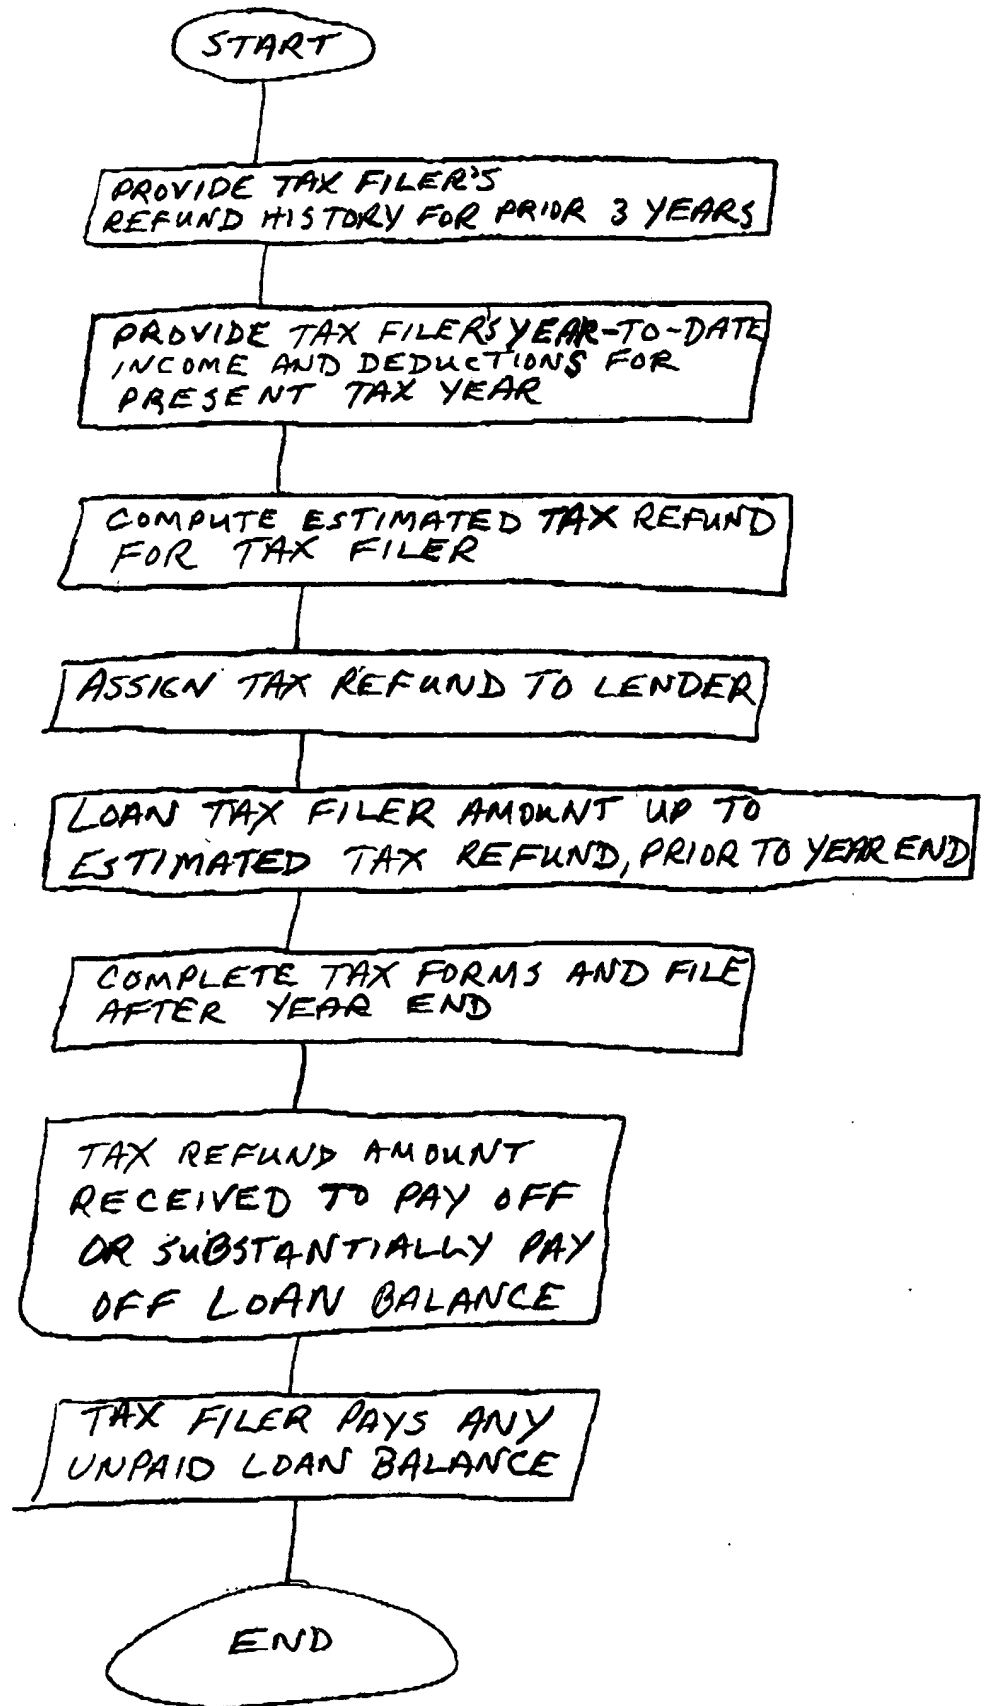 START
PROVIDE TAX FILER'S
REFUND HISTORY FOR PRIOR 3 YEARS
PROVIDE TAX FILER'S YEAR-TO-DATE
INCOME AND DEDUCTIONS FOR
PRESENT TAX YEAR
COMPUTE ESTIMATED TAX REFUND
FOR TAX FILER
ASSIGN TAX REFUND TO LENDER
LOAN TAX FILER AMOUNT UP TO
ESTIMATED TAX REFUND, PRIOR TO YEAR END
COMPLETE TAX FORMS AND FILE
AFTER YEAR END
TAX REFUND AMOUNT
RECEIVED TO PAY OFF
OR SUBSTANTIALLY PAY
OFF LOAN BALANCE
TAX FILER PAYS ANY
UNPAID LOAN BALANCE
END